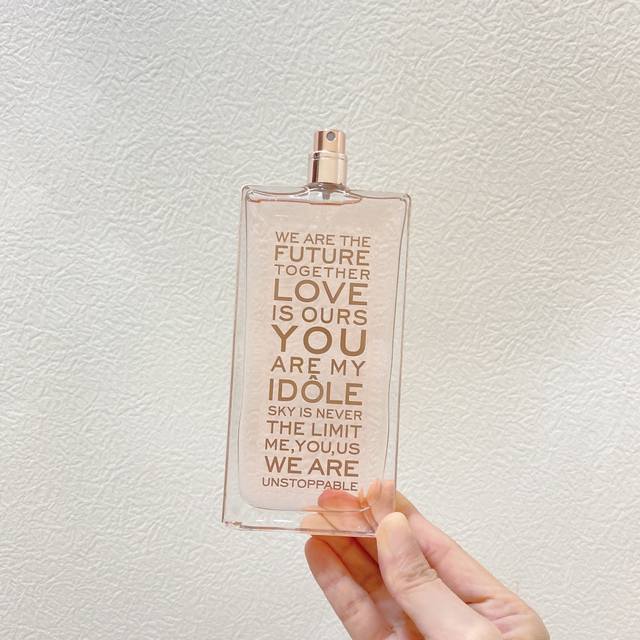 WE ARE THE
FUTURE
TOGETHER
LOVE
IS OURS
YOU
ARE MY
IDÔLE
SKY IS NEVER
THE LIMIT
ME,YOU,US
WE ARE
UNSTOPPABLE